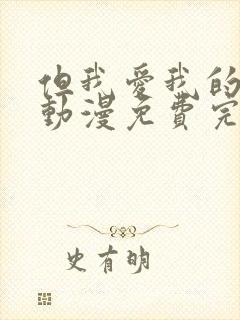 但我爱我的
動漫免費完
史有明